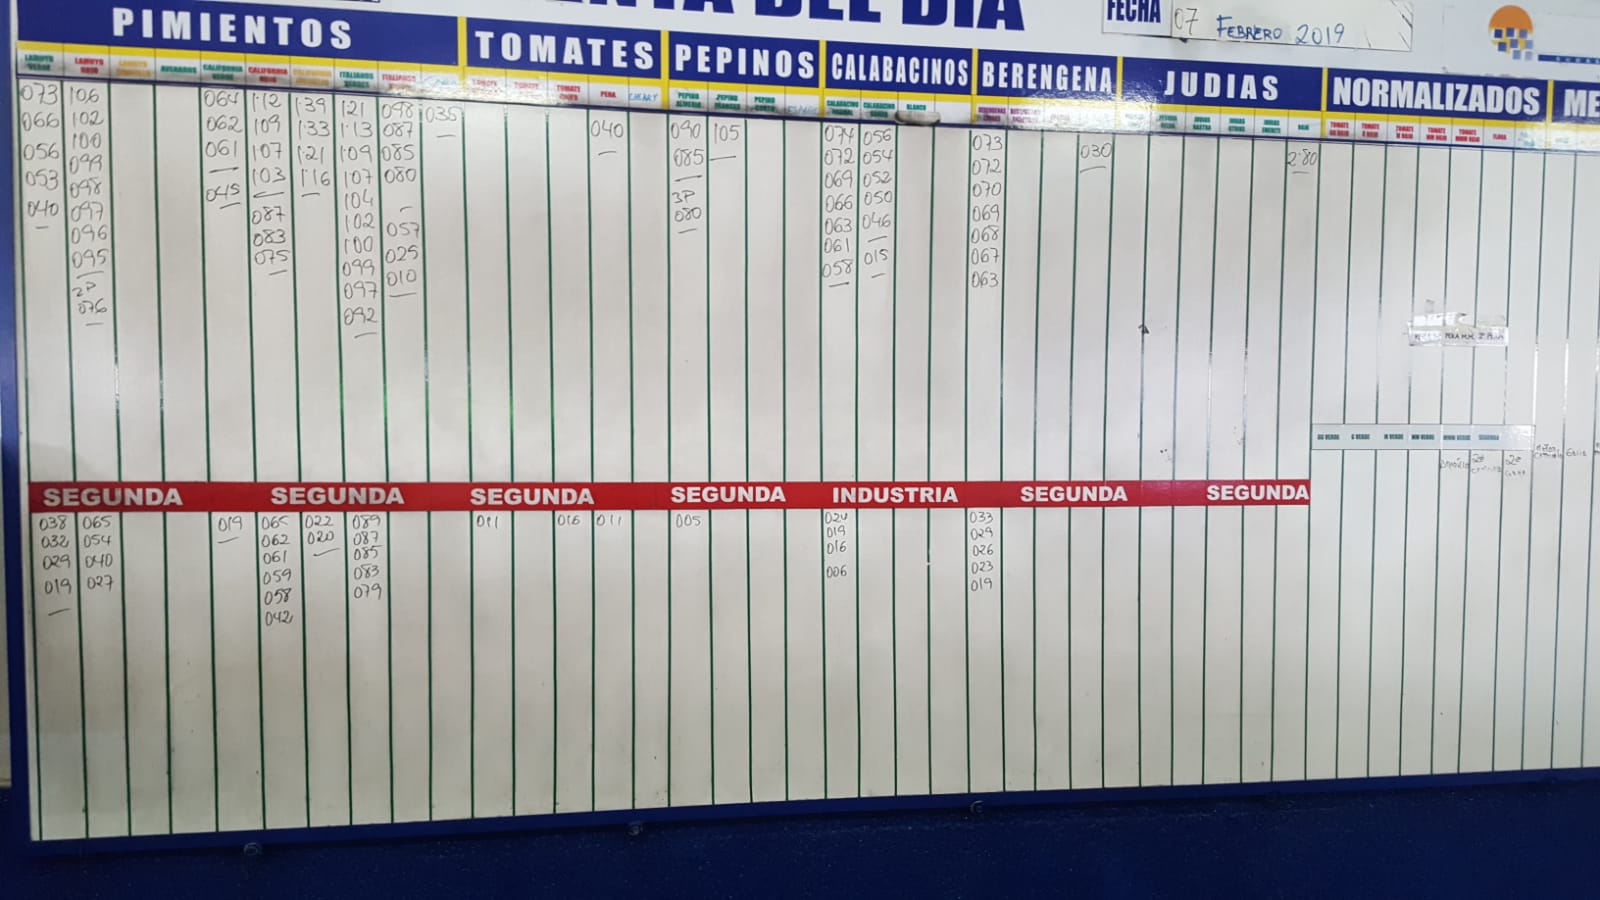 VENTA DEL DIA
FECHA 07 FEBRERO 2019
PIMIENTOS TOMATES PEPINOS CALABACINOS BERENGENA JUDIAS NORMALIZADOS ME
LAMUYO VERDE
LAMUYO ROJO
CALIFORNIA VERDE
CALIFORNIA ROJO
PERA
CHERRY
PEPINO ALMERIA
PEPINO FRANCES
PEPINO CORTO
BLANCO
073
066
056
053
040
106
102
100
099
098
097
096
095
2P
076
064
062
061
045
1·12
109
107
103
087
083
075
1·39
1·33
1·21
1·16
1·21
1·13
1·09
107
104
102
100
099
097
092
098
087
085
080
057
025
010
035
040
090
085
3P
080
105
074
072
069
066
063
061
058
056
054
052
050
046
015
073
072
070
069
068
067
063
030
2·80
GG VERDE G VERDE M VERDE MM VERDE MMM VERDE SEGUNDA
SEGUNDA SEGUNDA SEGUNDA SEGUNDA INDUSTRIA SEGUNDA SEGUNDA
038
032
029
019
065
054
040
027
019
065
062
061
059
058
042
022
020
089
087
085
083
079
011
016
011
005
024
019
016
006
033
029
026
023
019